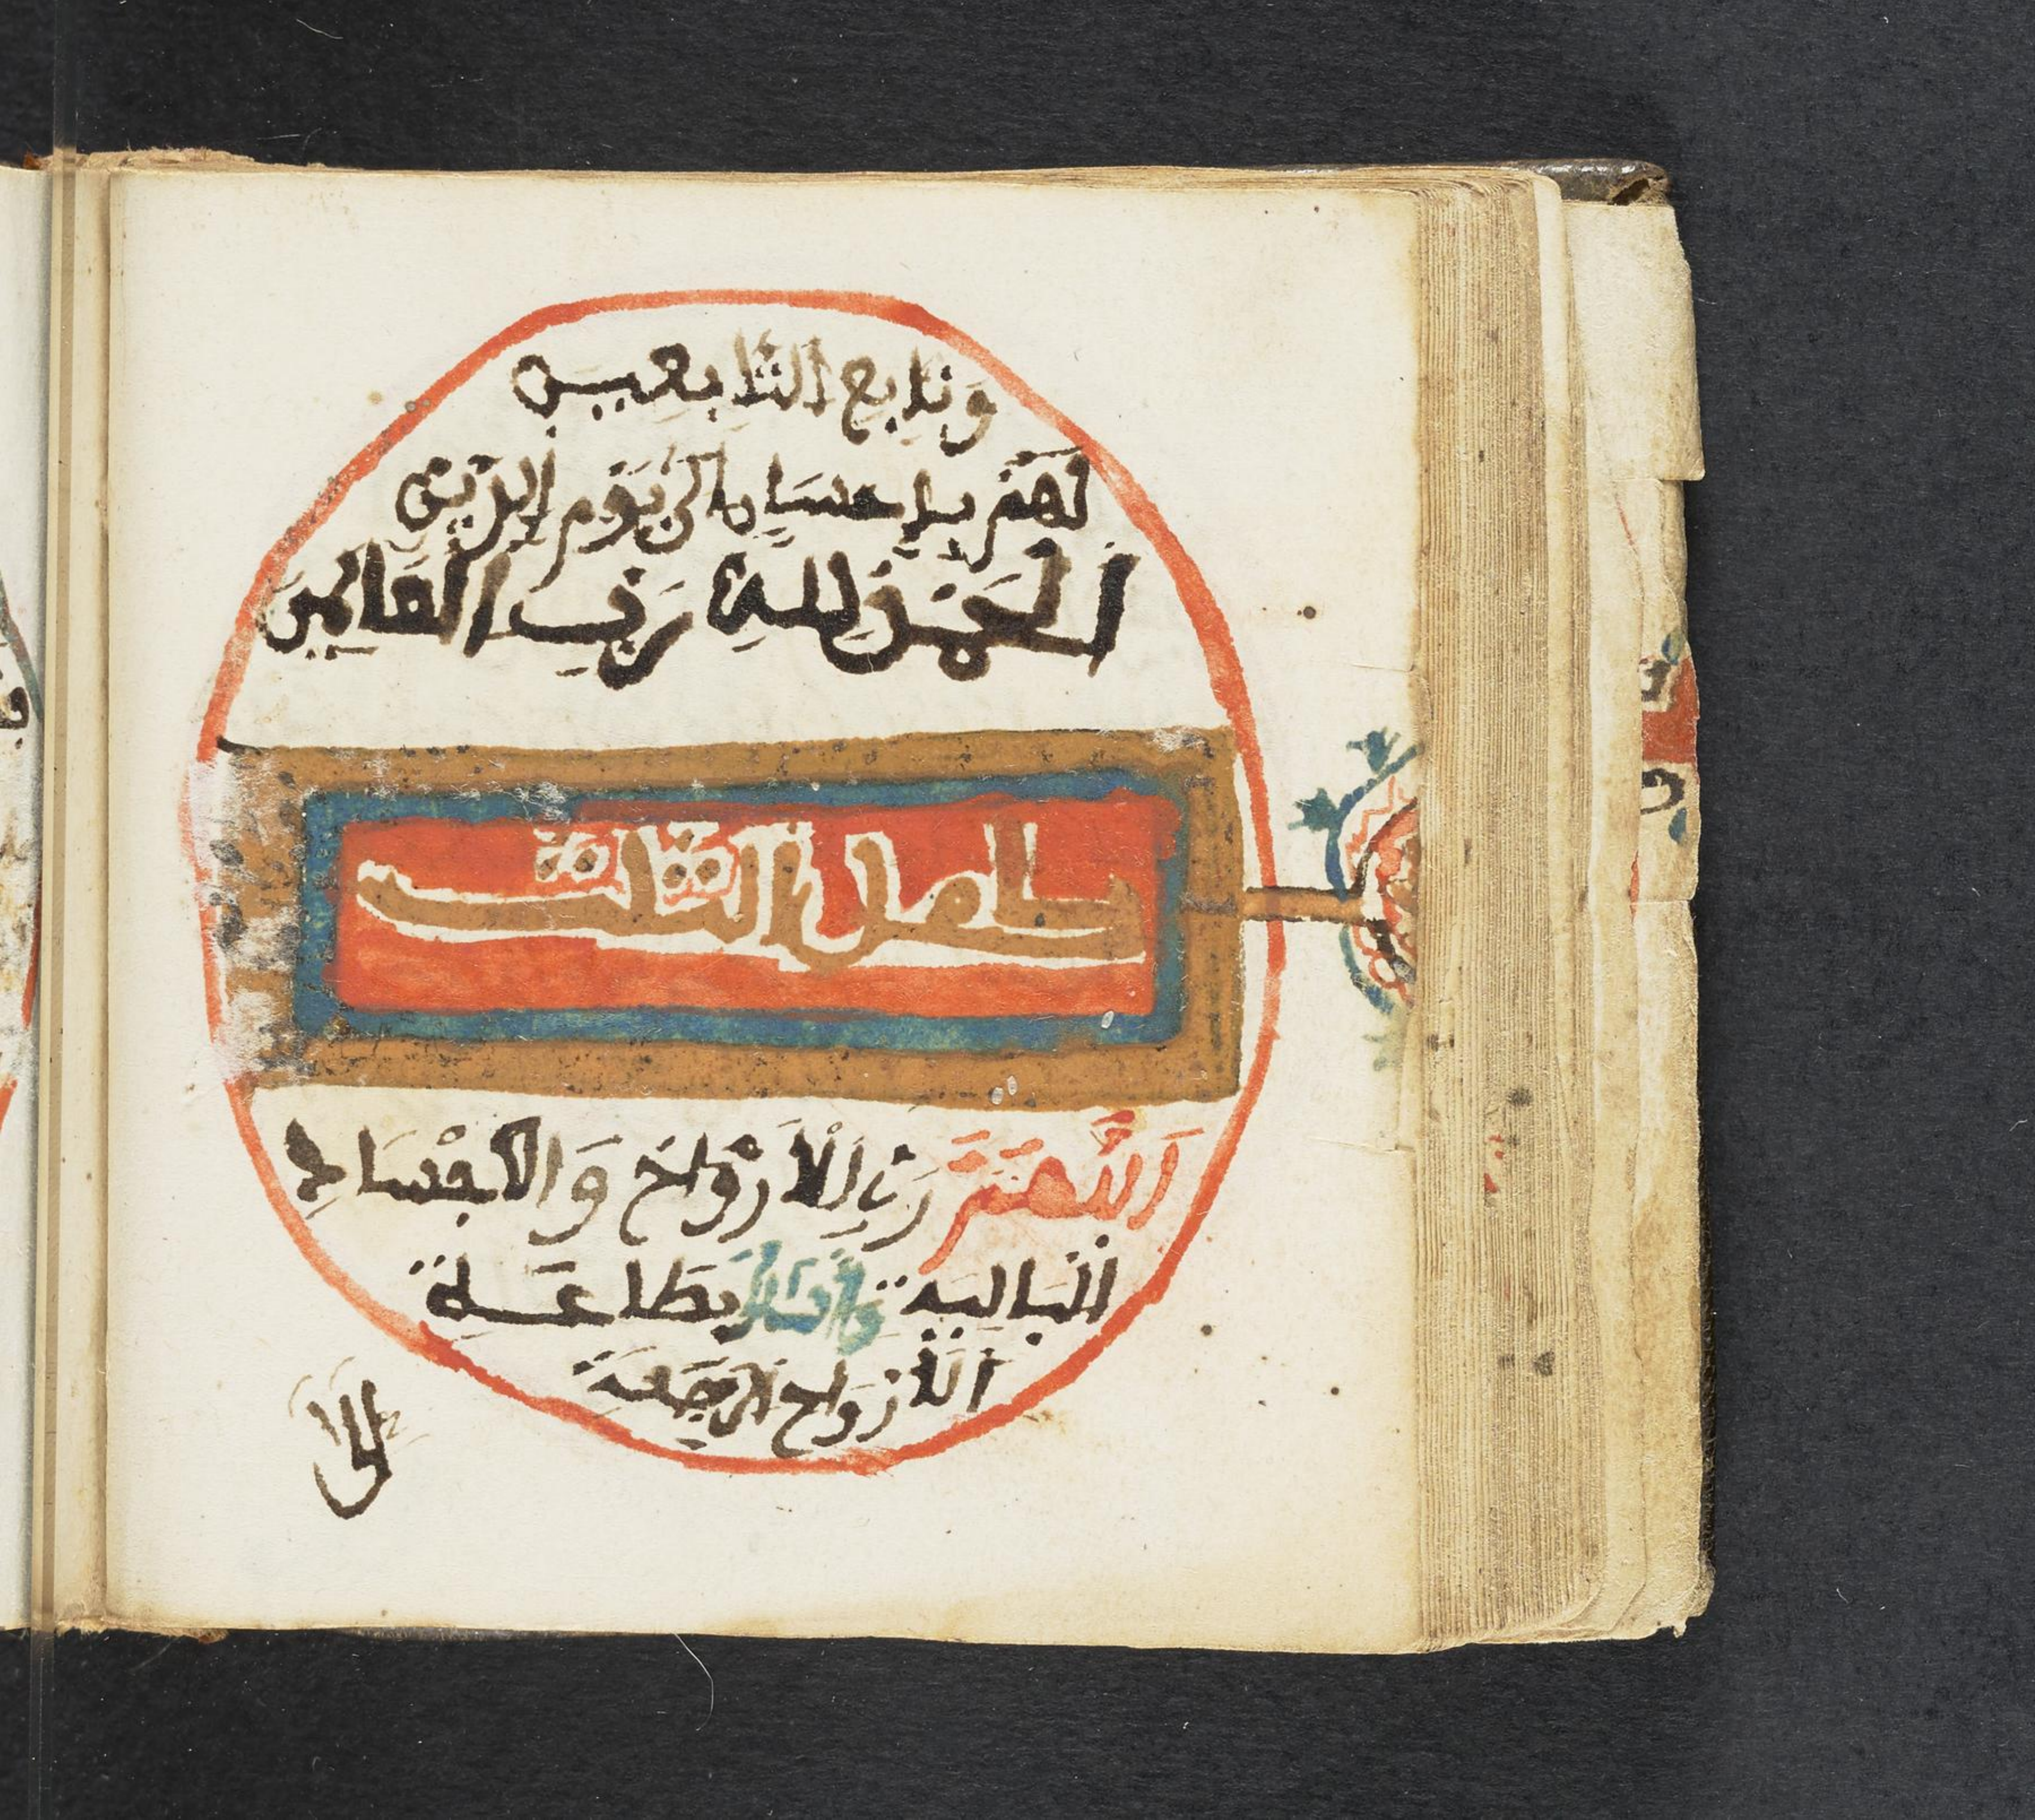 وَتَابِعِ التَّابِعِينَ
لَهُمْ بِإِحْسَانٍ إِلَى يَوْمِ الدِّينِ
اَلْحَمْدُ لِلهِ رَبِّ الْعَالَمِينَ
كامل الثلث
اَللَّهُمَّ رَبَّ الْأَرْوَاحِ وَالْأَجْسَادِ
الْبَالِيَةِ وَأَسْأَلُكَ بِطَاعَةِ
الْأَرْوَاحِ الرَّاجِعَةِ
إلى